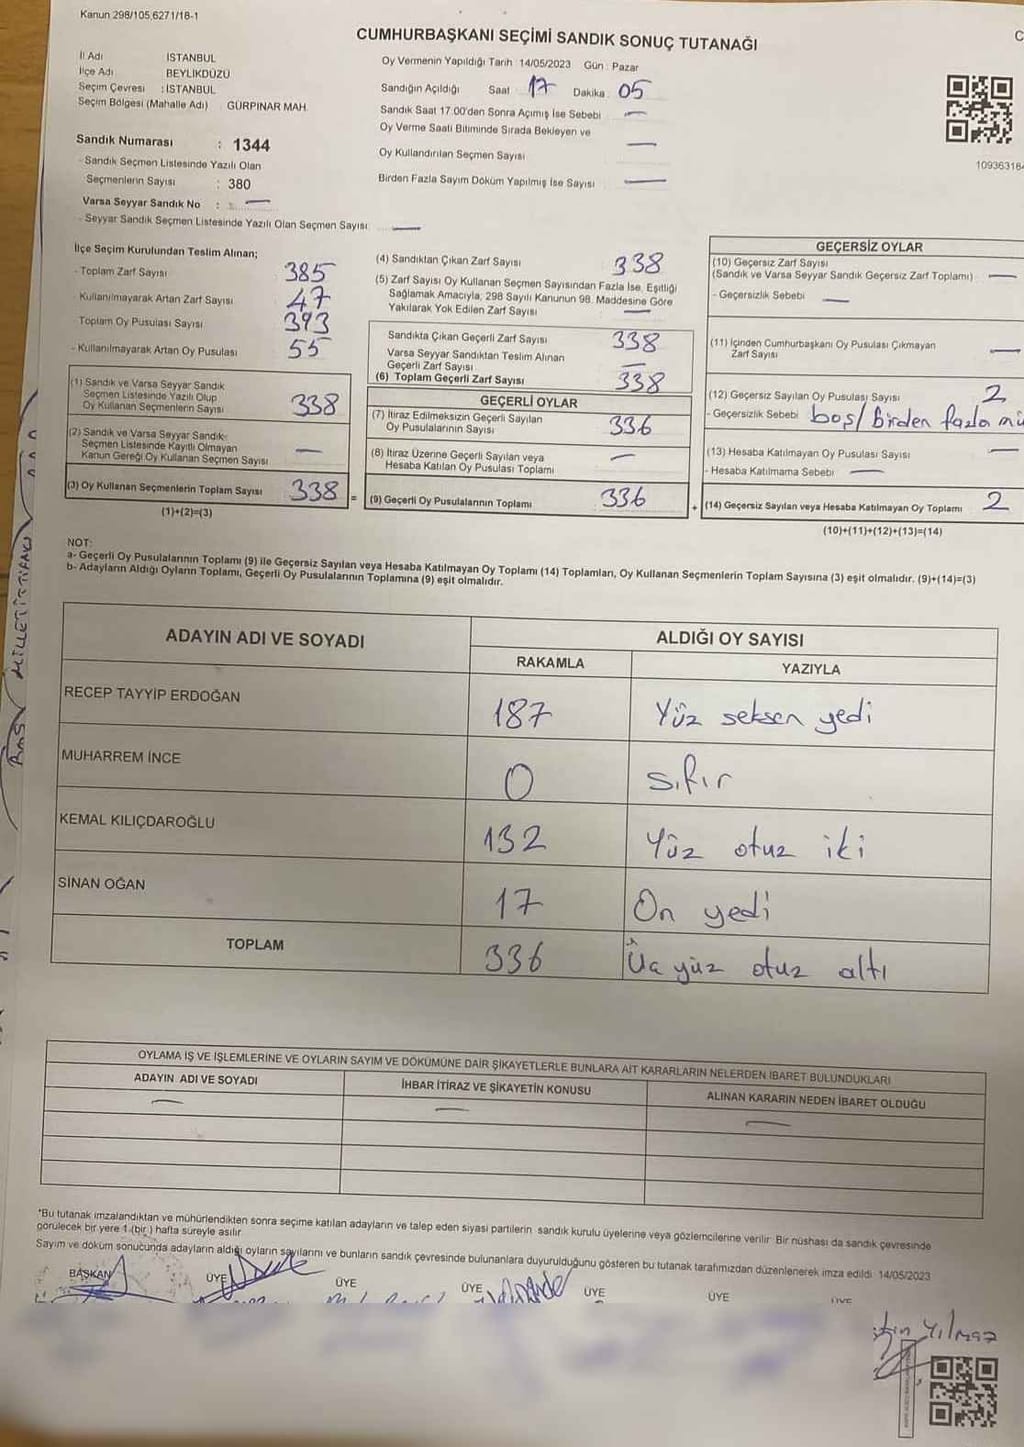 Kanun 298/105,6271/18-1
CUMHURBAŞKANI SEÇİMİ SANDIK SONUÇ TUTANAĞI
İl Adı İSTANBUL
İlçe Adı BEYLİKDÜZÜ
Seçim Çevresi : İSTANBUL
Seçim Bölgesi (Mahalle Adı) GÜRPINAR MAH.
Sandık Numarası : 1344
- Sandık Seçmen Listesinde Yazılı Olan
Seçmenlerin Sayısı : 380
Varsa Seyyar Sandık No : —
- Seyyar Sandık Seçmen Listesinde Yazılı Olan Seçmen Sayısı —
Oy Vermenin Yapıldığı Tarih : 14/05/2023 Gün : Pazar
Sandığın Açıldığı Saat 17 Dakika 05
Sandık Saat 17:00'den Sonra Açımış İse Sebebi —
Oy Verme Saati Bitiminde Sırada Bekleyen ve
Oy Kullandırılan Seçmen Sayısı —
Birden Fazla Sayım Döküm Yapılmış İse Sayısı —
10936318
İlçe Seçim Kurulundan Teslim Alınan;
- Toplam Zarf Sayısı 385
- Kullanılmayarak Artan Zarf Sayısı 47
Toplam Oy Pusulası Sayısı 393
- Kullanılmayarak Artan Oy Pusulası 55
(1) Sandık ve Varsa Seyyar Sandık
Seçmen Listesinde Yazılı Olup
Oy Kullanan Seçmenlerin Sayısı 338
(2) Sandık ve Varsa Seyyar Sandık
Seçmen Listesinde Kayıtlı Olmayan
Kanun Gereği Oy Kullanan Seçmen Sayısı —
(3) Oy Kullanan Seçmenlerin Toplam Sayısı 338 =
(1)+(2)=(3)
(4) Sandıktan Çıkan Zarf Sayısı 338
(5) Zarf Sayısı Oy Kullanan Seçmen Sayısından Fazla İse, Eşitliği
Sağlamak Amacıyla, 298 Sayılı Kanunun 98. Maddesine Göre
Yakılarak Yok Edilen Zarf Sayısı —
Sandıkta Çıkan Geçerli Zarf Sayısı 338
Varsa Seyyar Sandıktan Teslim Alınan
Geçerli Zarf Sayısı —
(6) Toplam Geçerli Zarf Sayısı 338
GEÇERLİ OYLAR
(7) İtiraz Edilmeksizin Geçerli Sayılan
Oy Pusulalarının Sayısı 336
(8) İtiraz Üzerine Geçerli Sayılan veya
Hesaba Katılan Oy Pusulası Toplamı —
(9) Geçerli Oy Pusulalarının Toplamı 336 +
GEÇERSİZ OYLAR
(10) Geçersiz Zarf Sayısı
(Sandık ve Varsa Seyyar Sandık Geçersiz Zarf Toplamı) —
- Geçersizlik Sebebi —
(11) İçinden Cumhurbaşkanı Oy Pusulası Çıkmayan
Zarf Sayısı —
(12) Geçersiz Sayılan Oy Pusulası Sayısı 2
- Geçersizlik Sebebi boş/ birden fazla mü
(13) Hesaba Katılmayan Oy Pusulası Sayısı —
- Hesaba Katılmama Sebebi —
(14) Geçersiz Sayılan veya Hesaba Katılmayan Oy Toplamı 2
(10)+(11)+(12)+(13)=(14)
NOT:
a- Geçerli Oy Pusulalarının Toplamı (9) ile Geçersiz Sayılan veya Hesaba Katılmayan Oy Toplamı (14) Toplamları, Oy Kullanan Seçmenlerin Toplam Sayısına (3) eşit olmalıdır. (9)+(14)=(3)
b- Adayların Aldığı Oyların Toplamı, Geçerli Oy Pusulalarının Toplamına (9) eşit olmalıdır.
MİLLET İTTİFAKI
ADAYIN ADI VE SOYADI ALDIĞI OY SAYISI
RAKAMLA YAZIYLA
RECEP TAYYİP ERDOĞAN 187 Yüz seksen yedi
MUHARREM İNCE 0 sıfır
KEMAL KILIÇDAROĞLU 132 Yüz otuz iki
SİNAN OĞAN 17 On yedi
TOPLAM 336 Üç yüz otuz altı
OYLAMA İŞ VE İŞLEMLERİNE VE OYLARIN SAYIM VE DÖKÜMÜNE DAİR ŞİKAYETLERLE BUNLARA AİT KARARLARIN NELERDEN İBARET BULUNDUKLARI
ADAYIN ADI VE SOYADI İHBAR İTİRAZ VE ŞİKAYETİN KONUSU ALINAN KARARIN NEDEN İBARET OLDUĞU
— — —
*Bu tutanak imzalandıktan ve mühürlendikten sonra seçime katılan adayların ve talep eden siyasi partilerin sandık kurulu üyelerine veya gözlemcilerine verilir. Bir nüshası da sandık çevresinde
görülecek bir yere 1 (bir) hafta süreyle asılır
Sayım ve döküm sonucunda adayların aldığı oyların sayılarını ve bunların sandık çevresinde bulunanlara duyurulduğunu gösteren bu tutanak tarafımızdan düzenlenerek imza edildi 14/05/2023
BAŞKAN ÜYE ÜYE ÜYE ÜYE ÜYE ÜYE
Yılmaz